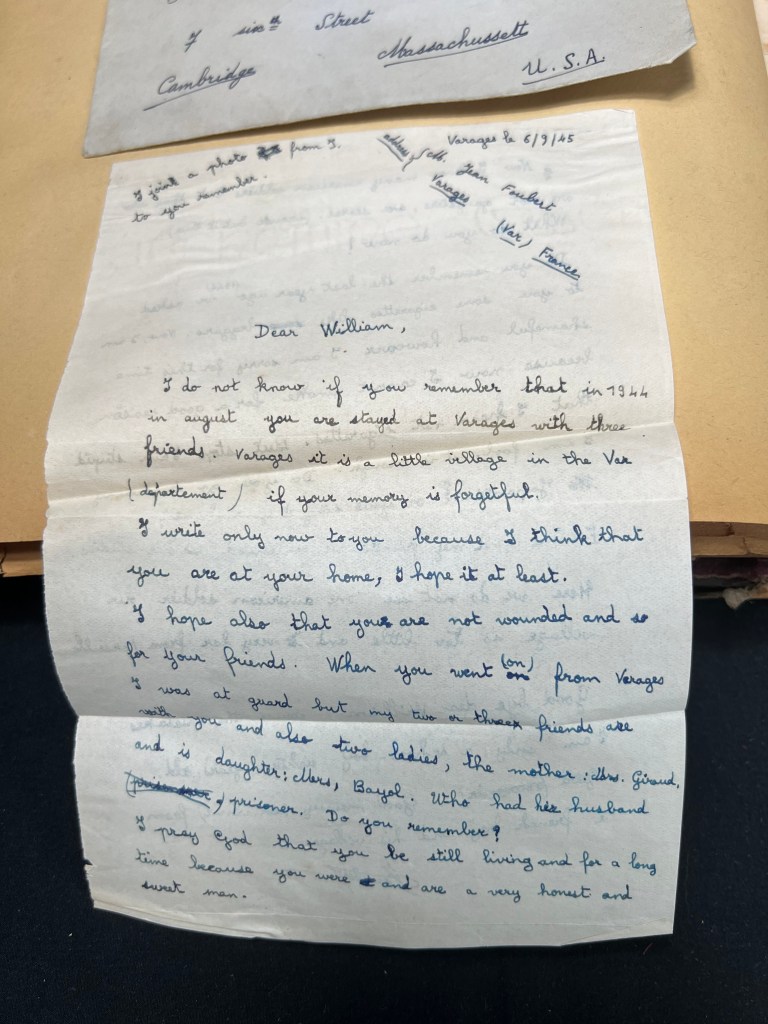 7 six th Street
Massachussett
Cambridge
U.S.A.
Varages le 6/9/45
I joint a photo from I.
to you remember.
address Mr. Jean Foubert
Varages
(Var) France
Dear William,
I do not know if you remember that in 1944
in august you are stayed at Varages with three
friends. Varages it is a little village in the Var
(département) if your memory is forgetful.
I write only now to you because I think that
you are at your home, I hope it at least.
I hope also that you are not wounded and so
for your friends. When you went (on) from Varages
I was at guard but my two or three friends are
with you and also two ladies, the mother: Mrs. Giraud,
and is daughter: Mers, Bayol. Who had her husband
prisoner. Do you remember?
I pray God that you be still living and for a long
time because you were and are a very honest and
sweet man.